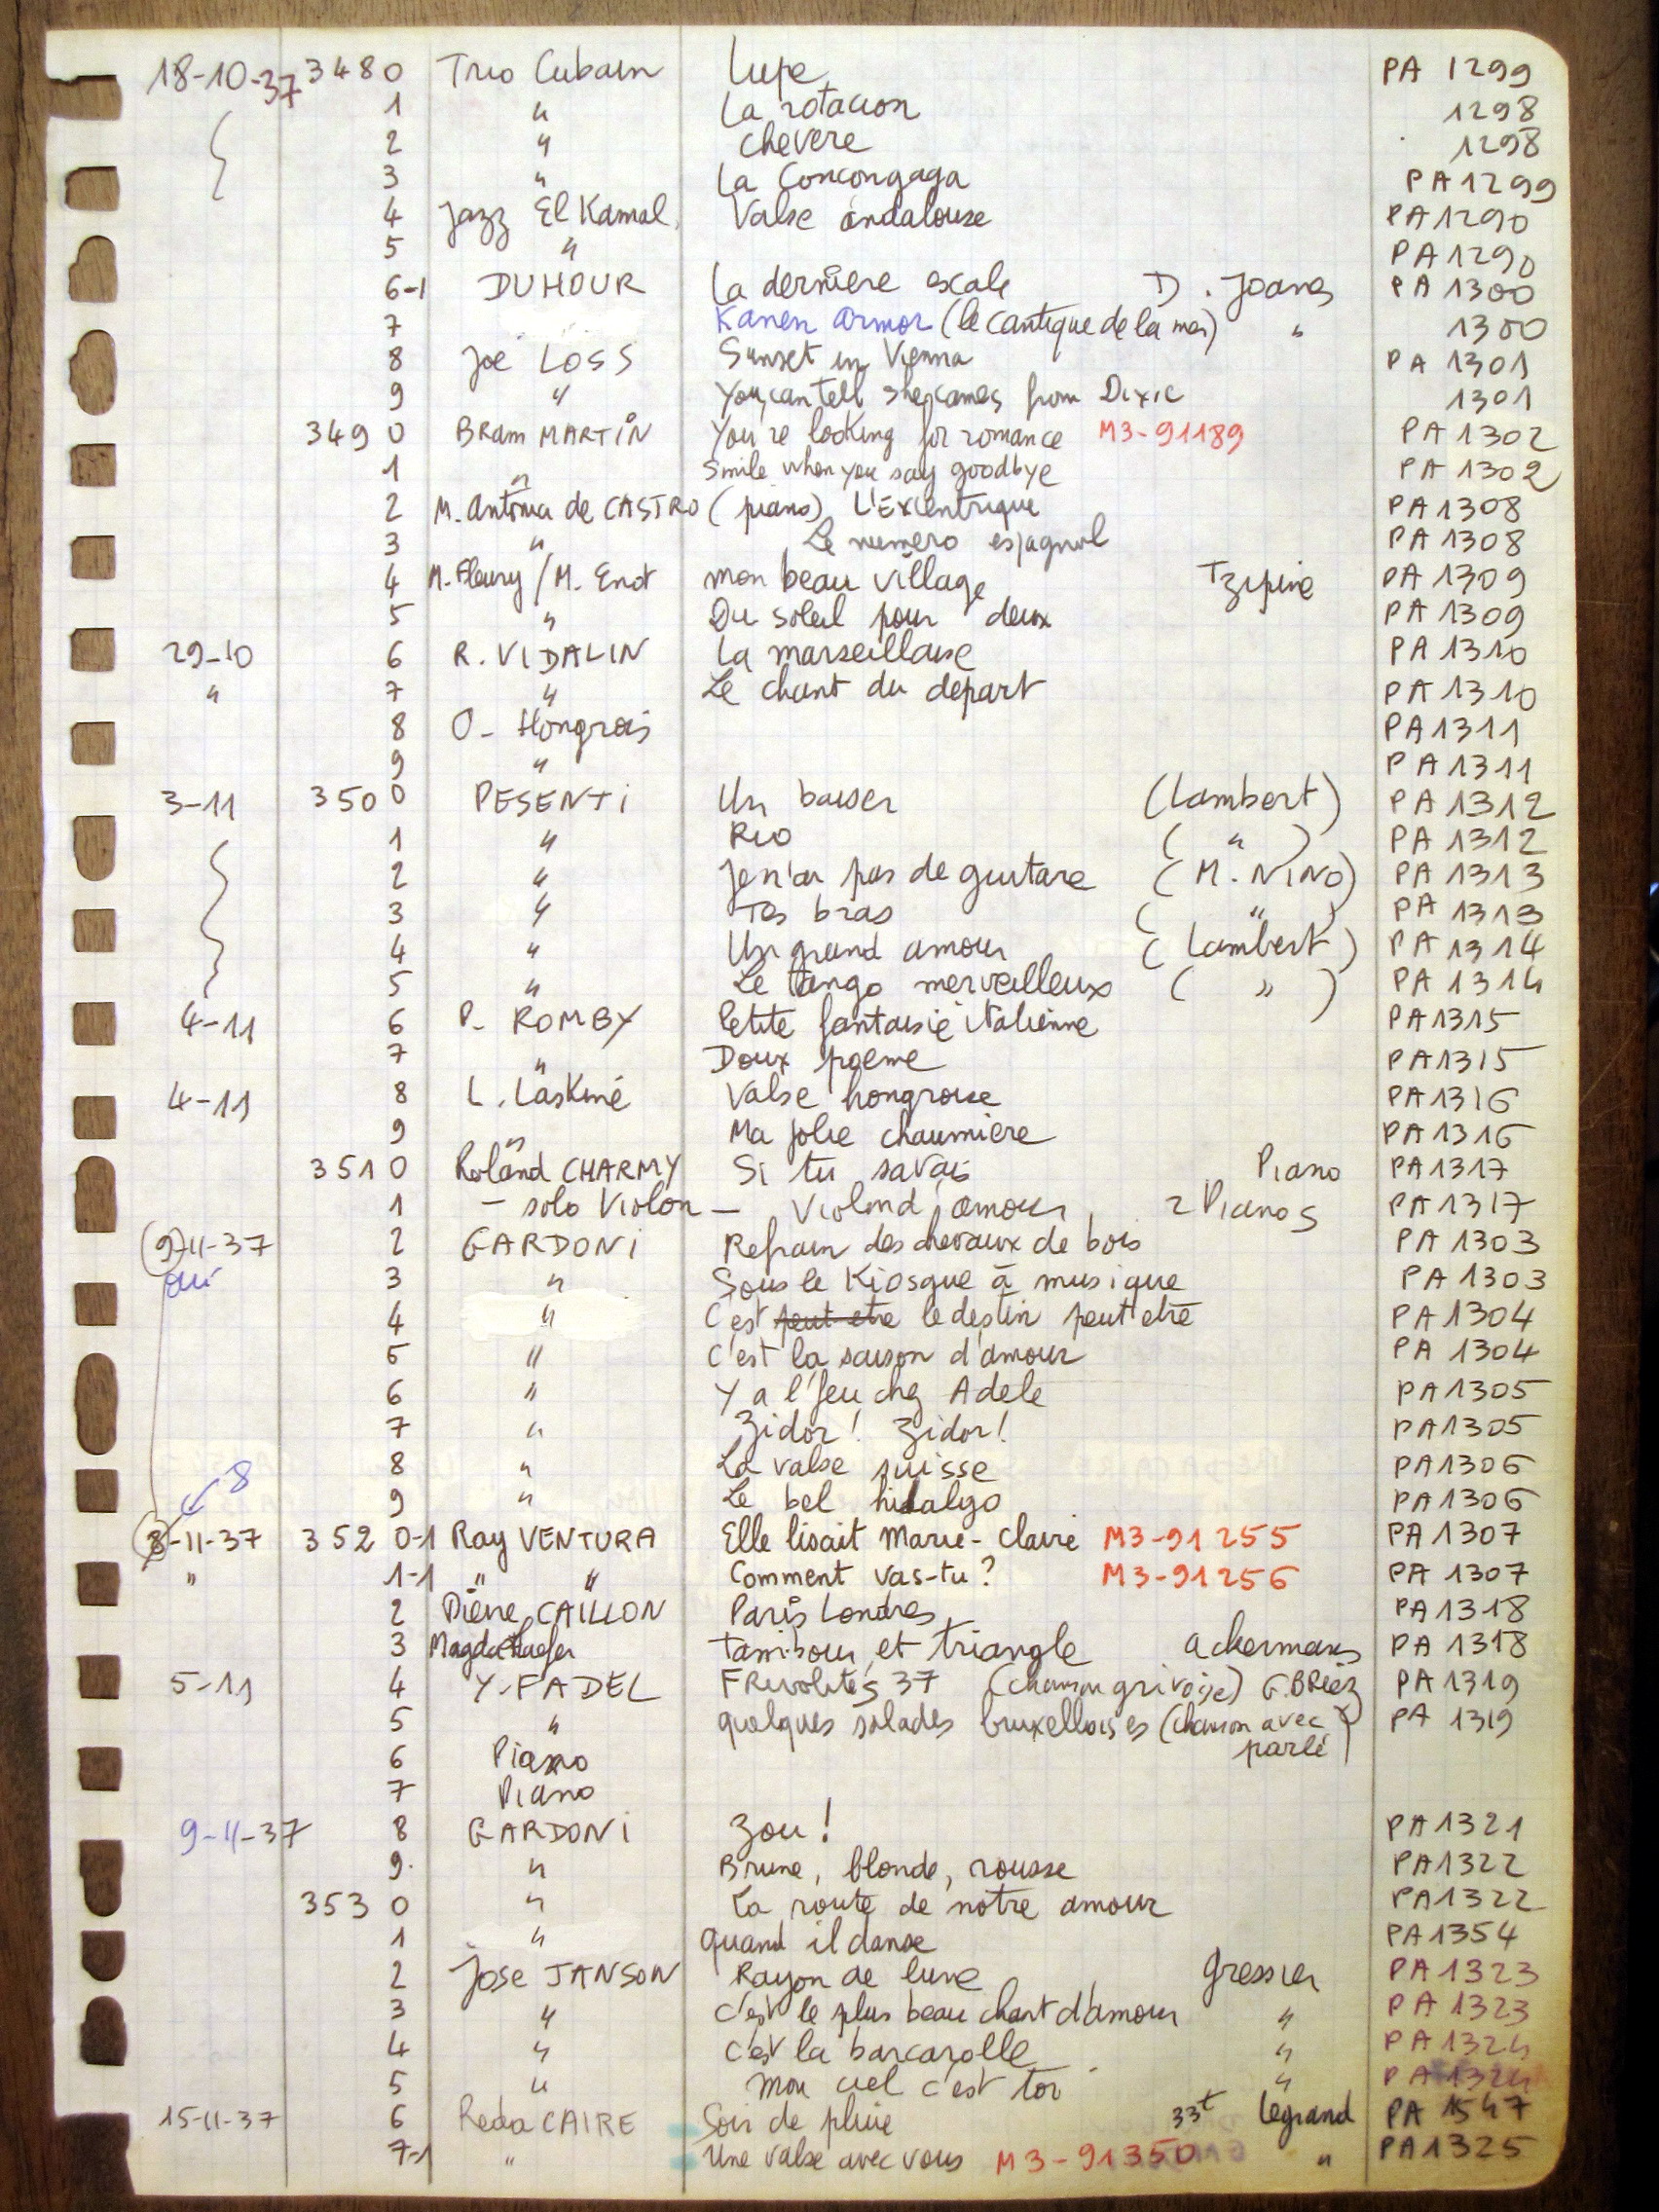 18-10-37 3480 Trio Cubain Lupe PA 1299
1 " La rotacion 1298
2 " Chevere 1298
3 " La Concongaga PA 1299
4 Jazz El Kamal Valse andalouse PA 1290
5 " PA 1290
6-1 DUHOUR La dernière escale D. Joanes PA 1300
7 Kanen armor (le cantique de la mer) " 1300
8 Joe LOSS Sunset in Vienna PA 1301
9 " You can tell she comes from Dixie 1301
3490 Bram MARTIN You're looking for romance M3-91189 PA 1302
1 " Smile when you say goodbye PA 1302
2 M. Antonia de CASTRO (piano) L'Excentrique PA 1308
3 " Le numero espagnol PA 1308
4 M. Fleury / M. Enot mon beau village Tzipine PA 1309
5 " Du soleil pour deux PA 1309
29-10 6 R. VIDALIN La marseillaise PA 1310
" 7 " Le chant du depart PA 1310
8 O- Hongrois PA 1311
9 " PA 1311
3-11 3500 PESENTI Un baiser (Lambert) PA 1312
1 " Rio ( " ) PA 1312
2 " Je n'ai pas de guitare (M. NINO) PA 1313
3 " Tes bras ( " ) PA 1313
4 " Un grand amour (Lambert) PA 1314
5 " Le tango merveilleux ( " ) PA 1314
4-11 6 P. ROMBY Petite fantaisie italienne PA 1315
7 " Doux poeme PA 1315
4-11 8 L. Laskine Valse hongroise PA 1316
9 " Ma jolie chaumière PA 1316
3510 Roland CHARMY Si tu savais Piano PA 1317
1 - solo Violon - Violon d'amour 2 Pianos PA 1317
(9)-11-37 2 GARDONI Refrain des chevaux de bois PA 1303
oui 3 " Sous le Kiosque à musique PA 1303
4 " C'est peut-etre le destin peut etre PA 1304
5 " C'est la saison d'amour PA 1304
6 " Y a l'feu chez Adele PA 1305
7 " Zidor! Zidor! PA 1305
8 8 " La valse suisse PA 1306
9 " Le bel hidalgo PA 1306
-11-37 3520-1 Ray VENTURA Elle lisait Marie-Claire M3-91255 PA 1307
" 1-1 " " Comment vas-tu? M3-91256 PA 1307
2 CAILLON Paris Londres PA 1318
3 Magda Tambour et triangle ackermans PA 1318
5-11 4 Y. FADEL FRivolités 37 (chanson grivoise) G. BRiez PA 1319
5 " quelques salades bruxelloises (chanson avec PA 1319
parlé)
6 Piano
7 Piano
9-11-37 8 GARDONI Zou! PA 1321
9. " Brune, blonde, rousse PA 1322
3530 " La route de notre amour PA 1322
1 " Quand il danse PA 1354
2 José JANSON Rayon de lune Gressier PA 1323
3 " c'est le plus beau chant d'amour " PA 1323
4 " c'est la barcarolle " PA 1324
5 " Mon ciel c'est toi " PA 1324
15-11-37 6 Reda CAIRE Soir de pluie 33t Legrand PA 1547
7-1 " Une valse avec vous M3-91350 " PA 1325